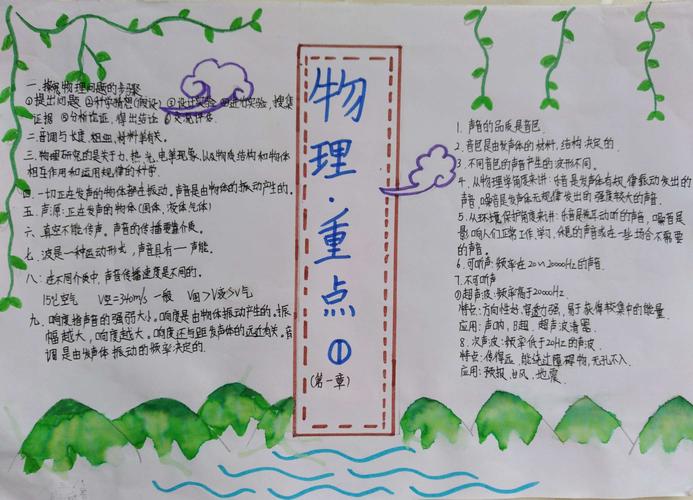 一、探究物理问题的步骤
①提出问题 ②科学猜想(假设) ③设计实验 ④进行实验，搜集
证据 ⑤分析论证，得出结论 ⑥交流评估.
二、音调与长度、粗细、材料等有关。
三、物理研究的是关于力、热、光、电等现象，以及物质结构和物体
相互作用和运用规律的科学.
四、一切正在发声的物体都在振动。声音是由物体的振动产生的。
五、声源：正在发声的物体(固体，液体气体)
六、真空不能传声。声音的传播需介质。
七、波是一种运动形式，声音具有一声能。
八：在不同介质中，声音传播速度是不同的。
15℃空气 V空=340m/s 一般 V固>V液>V气
九、响度指声音的强弱大小。响度是由物体振动产生的。振
幅越大，响度越大。响度还与距发声体的远近有关。音
调是由发声体振动的频率决定的.
物理·重点①
(第一章)
1. 声音的品质是音色.
2. 音色是由发声体的材料，结构决定的.
3. 不同音色的声音产生的波形不同。
4. 从物理学角度来讲：乐音是发声体有规律振动发出的
声音，噪音是发声体无规律发出的强度较大的声音.
5. 从环境保护角度来讲：乐音是悦耳动听的声音，噪音是
影响人们正常工作、学习、休息的声音或在一些场合不需要
的声音。
6. 可听声：频率在20~20000Hz的声音.
7. 不可听声
①超声波：频率高于20000Hz.
特点：方向性好，穿透力强，易于获得较集中的能量
应用：声呐，B超，超声波清雾.
8. 次声波：频率低于20Hz的声波.
特点：传得远，能绕过障碍物，无孔不入.
应用：预报，台风、地震.